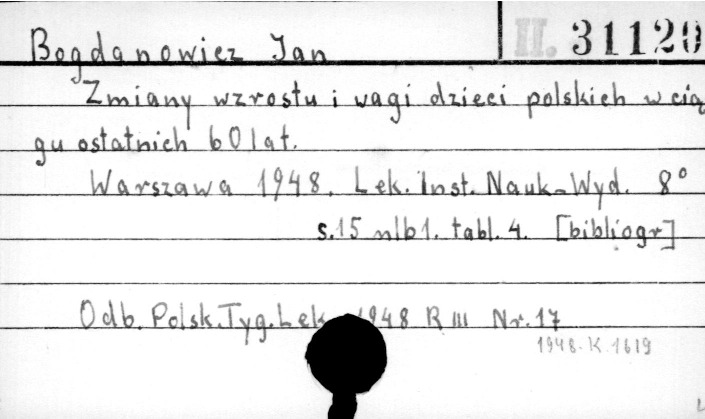 Bogdanowicz Jan II. 31120
Zmiany wzrostu i wagi dzieci polskich w cią
gu ostatnich 60 lat.
Warszawa 1948. Lek. Inst. Nauk-Wyd. 8°
s.15 nlb1. tabl. 4. [bibliogr]
Odb. Polsk.Tyg.Lek. 1948 R III Nr.17
1948.K.1619